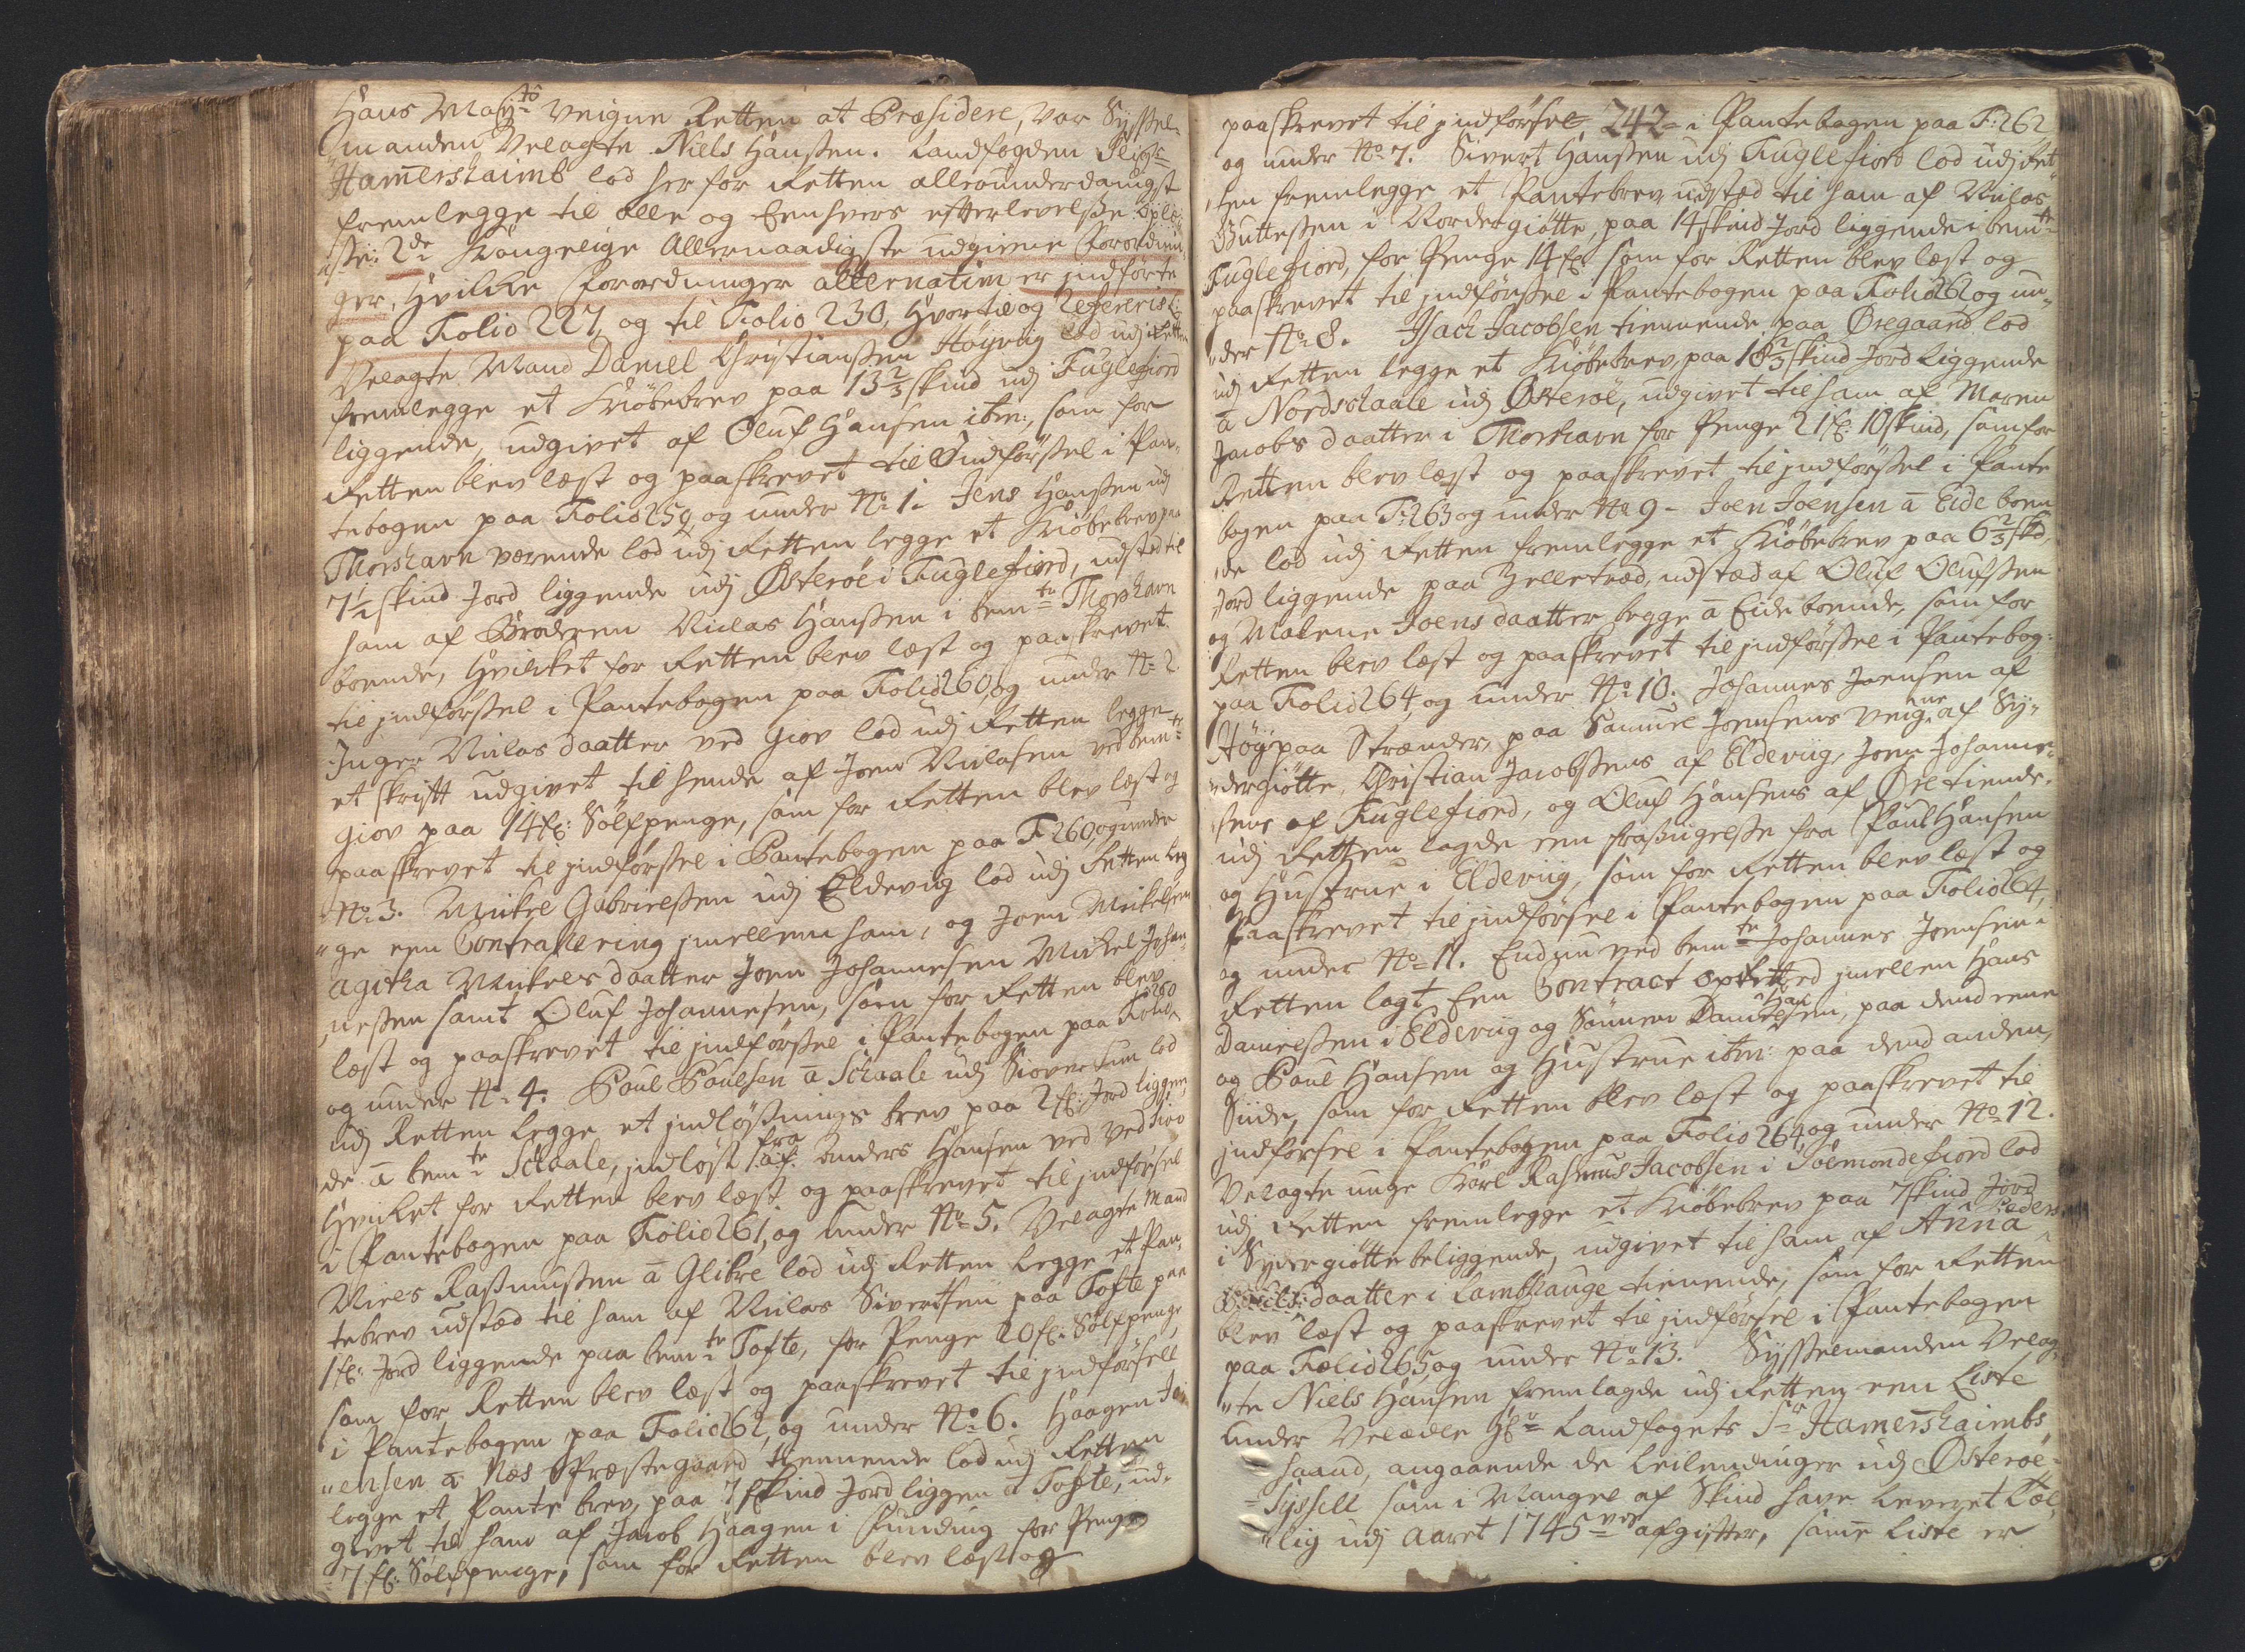 Hans May:ts Veigne Retten at Præsidere, var Syssel-
manden Velagte Niels Hansen. Landfogden Sr
Hamershaimb lod her for Retten allerunderdanigst
fremlegge til alle og Eenhvers efterlevelse
2de Kongelige Allernaadigste udgivne Forordnin-
ger, Hvilcke Forordninger alternatim er indførte
paa Folio 227, og til Folio 230, Hvortil og Refereris:
Velagte Mand Daniel Christiansen Høyvüg lod udj Retten
fremlegge et Kiöbebrev paa 13 2/3 skind udj Fuglefiord
liggende, udgivet af Oluf Hansen ibm:, som for
Retten blev læst og paaskrevet til Indförsel i Pan-
tebogen paa Folio 259, og under No 1. Jens Hansen udj
Thorshavn værende lod udj Retten legge et Kiöbebrev paa
7½ skind Jord liggende udj Østeröe i Fuglefiord, udsted til
ham af Broderen Niclas Hansen i bemte Thorshavn
boende, Hvilcket for Retten blev læst og paaskrevet
til jndförsel i Pantebogen paa Folio 260, og under No 2.
Inger Niclas daatter ved Giov lod udj Retten legge
et skrift udgivet til hende af Joen Niclasen ved bemte
Giov paa 14 fl: Sölfpenge, som for Retten blev læst og
paaskrevet til jndförsel i Pantebogen paa F: 260, og under
No 3. Mickel Gabrielsen udj Eldevig lod udj Retten leg
ge een Contrahering jmellem ham, og Joen Mickelsen
Agitha Mickels daatter Joen Johannesen Mickel Johan-
nessen samt Oluf Johannesen, som for Retten blev
læst og paaskrevet til jndförsel i Pantebogen paa Folio 260
og under No 4. Poul Poulsen a Schaale udj Siovertun lod
udj Retten legge et jndlösnings brev paa 2 fl: Jord liggen
de a bemte Schaale, jndlöst fra af Anders Hansen ved Vedsiov
Hvilket for Retten blev læst og paaskrevet til jndförsel
i Pantebogen paa Folio 261, og under No 5. Velagte Mand
Niels Rasmussen a Glibre lod udj Retten legge et Pan-
tebrev udstæd til ham af Niclas Sivertsen paa Tofte paa
1 fl: Jord liggende paa bemte Tofte, for Penge 20 fl: Sölfpenge
som for Retten blev læst og paaskrevet til jndförsell
i Pantebogen paa Folio 262, og under No 6. Haagen Jo
ensen a Næs Præstegaard tienende lod udj Retten
legge et Pante brev, paa 7 skind Jord liggen a Tofte, ud-
givet til ham af Jacob Haagen i Funding for Penge
7 fl: Sölfpenge, som for Retten blev læst og
paaskrevet til jndförsel, 242 i Pantebogen paa F: 262
og under No 7. Sivert Hansen udj Fuglefiord lod udj Ret
ten fremlegge et Pantebrev udstæd til ham af Niclas
Guttesen i Nordergiötte, paa 14 skind Jord liggende i bemte
Fuglefiord, for Penge 14 fl: som for Retten blev læst og
paaskrevet til jndförsel i Pantebogen paa Folio 262 og un-
der No 8. Isach Jacobsen tienende paa Øregaard lod
udj Retten legge et Kiöbebrev, paa 18 2/3 skind Jord liggende
a Nordschaale udj Østeröe, udgivet til ham af Maren
Jacobs daatter i Thorshavn for Penge 21 fl: 10 skind, som for
Retten blev læst og paaskrevet til jndförsel i Pante
bogen paa F: 263 og under No 9. Joen Joensen a Eide boen
de lod udj Retten fremlegge et Kiöbebrev paa 6 2/3 skd
Jord liggende paa Zelletræd, udstæd af Oluf Olufsen
og Malene Joens daatter begge a Eide boende, som for
Retten blev læst og paaskrevet til jndförsel i Pantebog:
paa Folio 264, og under No 10. Johannes Joensen af
Høy paa Strænder, paa Samuel Joensens Veigne af Sy-
dergiötte, Christian Jacobsens af Eldeviig, Joen Johanne-
sens af Fuglefiord, og Oluf Hansens af Øre tiende,
udj Retten lagde een frasigelse fra Poul Hansen
og Hustrue i Eldeviig, som for Retten blev læst og
Paaskrevet til jndförsel i Pantebogen paa Folio 264,
og under No 11. Endnu ved bemte Johannes Joensen i
Retten lagt Een Contract opretted jmellem Hans
Danielsen i Eldeviig og Sönnen Daniel Hansen, paa dend eene
og Poul Hansen og Hustrue ibm: paa dend anden
Siide, som for Retten blev læst og paaskrevet til
jndförsel i Pantebogen paa Folio 264, og under No 12.
Velagte unge Karl Rasmus Jacobsen i Sölmondefiord lod
udj Retten fremlegge et Kiöbebrev paa 7 skind Jord
i Sydergiötte beliggende, udgivet til ham af Anna Peders
daatter i Lambhauge tienende, som for Retten
blev læst og paaskrevet til jndförsel i Pantebogen
paa Folio 265, og under No 13. Sysselmanden Velag-
te Niels Hansen fremlagde udj Retten een Liste
under Velædle Hr Landfogets Sr Hamershaimbs
haand, angaaende de Leilendinger udj Østeröe
Syssell som i Mangel af Skind have leveret Tæl-
lig udj Aaret 1745 afgifter, samme Liste er